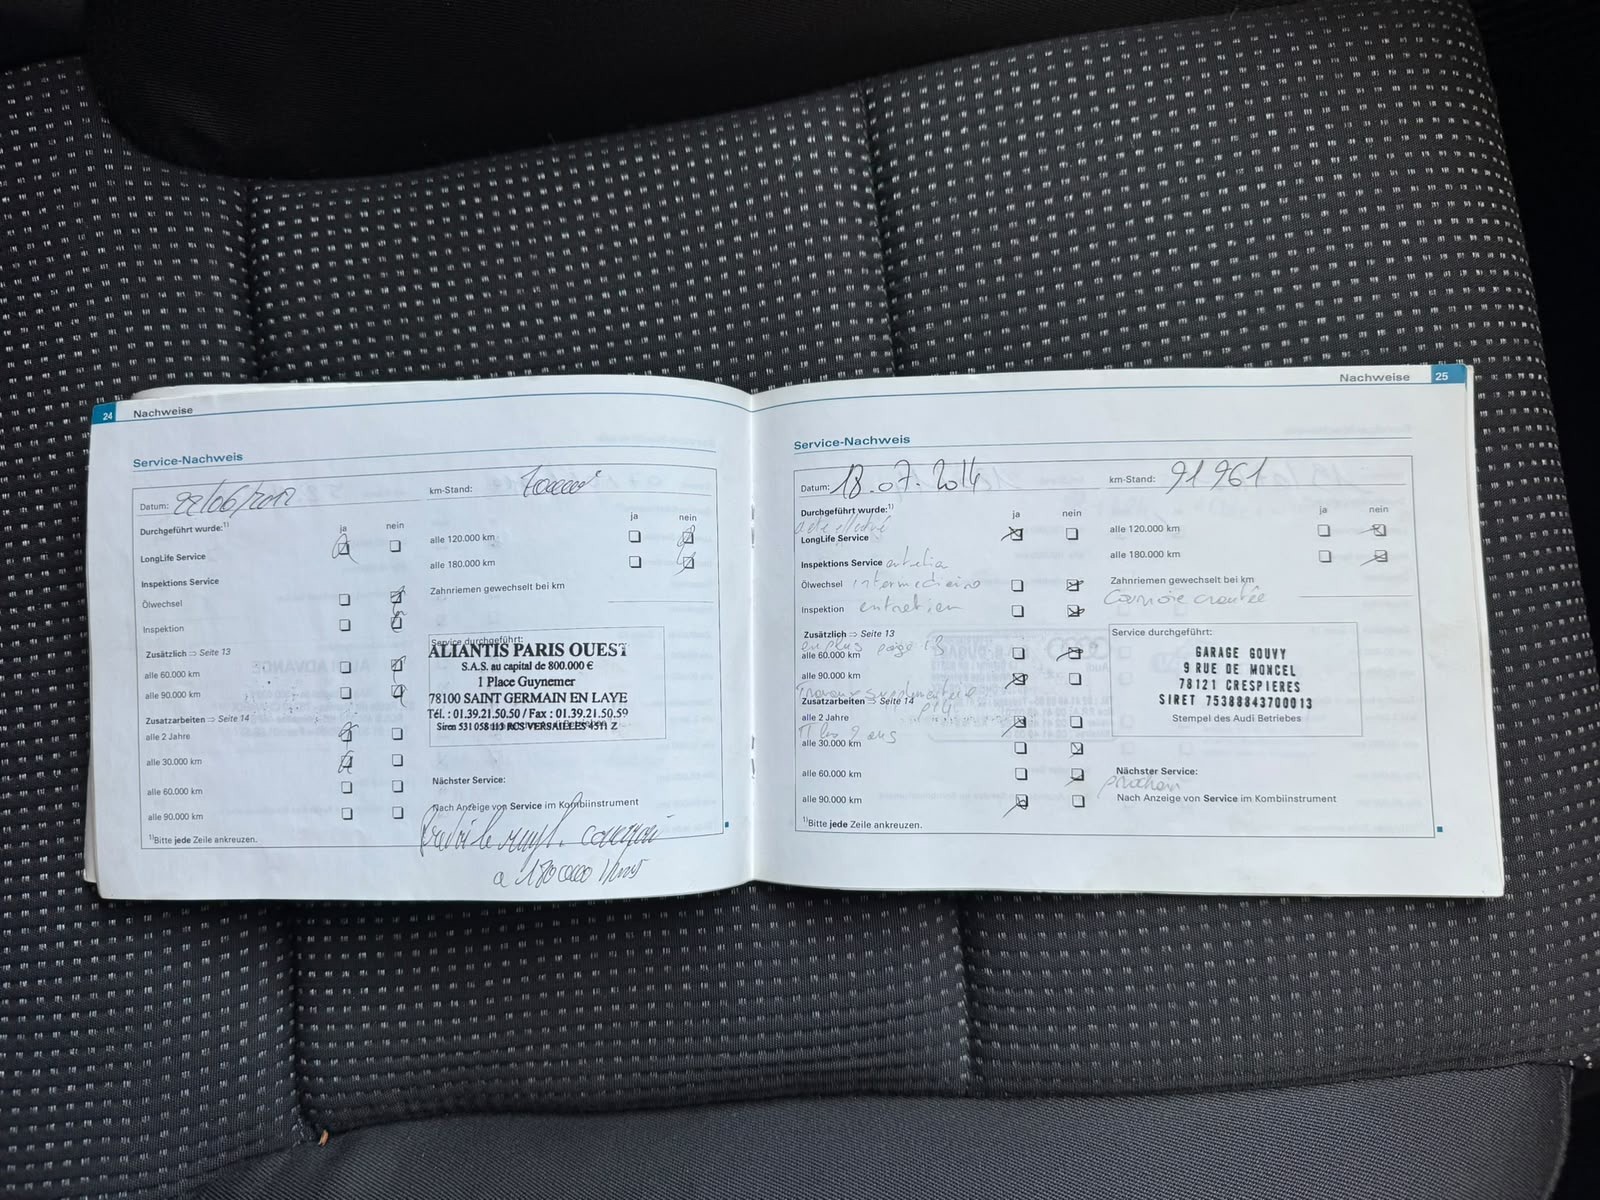 24 Nachweise
Service-Nachweis
Datum: 22/06/2012
km-Stand:
Durchgeführt wurde:1)
ja nein
LongLife Service
Inspektions Service
Ölwechsel
Inspektion
Zusätzlich ⇒ Seite 13
alle 60.000 km
alle 90.000 km
Zusatzarbeiten ⇒ Seite 14
alle 2 Jahre
alle 30.000 km
alle 60.000 km
alle 90.000 km
1)Bitte jede Zeile ankreuzen.
ja nein
alle 120.000 km
alle 180.000 km
Zahnriemen gewechselt bei km
Service durchgeführt:
ALIANTIS PARIS OUEST
S.A.S. au capital de 800.000 €
1 Place Guynemer
78100 SAINT GERMAIN EN LAYE
Tél. : 01.39.21.50.50 / Fax : 01.39.21.50.59
Siren 531 058 113 RCS VERSAILLES 4511 Z
Nächster Service:
Nach Anzeige von Service im Kombiinstrument
a 180000 kms
Nachweise 25
Service-Nachweis
Datum: 18.07.2014
km-Stand: 91961
Durchgeführt wurde:1)
ja nein
LongLife Service
Inspektions Service
Ölwechsel
Inspektion entretien
Zusätzlich ⇒ Seite 13
en plus page 13
alle 60.000 km
alle 90.000 km
Zusatzarbeiten ⇒ Seite 14
alle 2 Jahre
alle 30.000 km
alle 60.000 km
alle 90.000 km
1)Bitte jede Zeile ankreuzen.
ja nein
alle 120.000 km
alle 180.000 km
Zahnriemen gewechselt bei km
Courroie crantée
Service durchgeführt:
GARAGE GOUVY
9 RUE DE MONCEL
78121 CRESPIERES
SIRET 75388843700013
Stempel des Audi Betriebes
Nächster Service:
prochain
Nach Anzeige von Service im Kombiinstrument